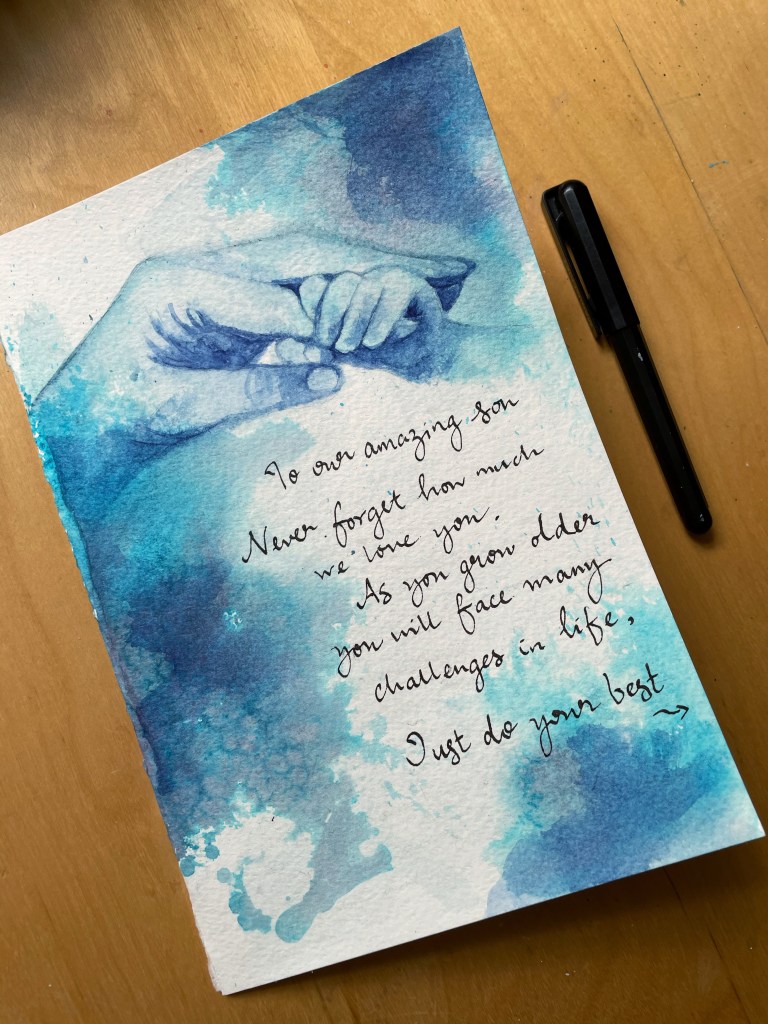 To our amazing son
Never forget how much
we love you.
As you grow older
you will face many
challenges in life,
Just do your best
→